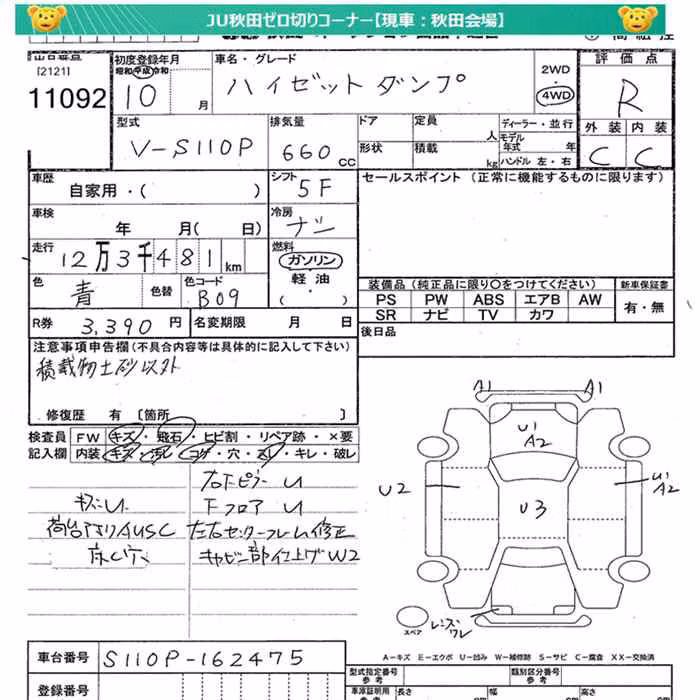 JU秋田ゼロ切りコーナー【現車：秋田会場】
[2121]
11092
初度登録年月
昭和 平成 令和
10 月
車名・グレード
ハイゼットダンプ
2WD
・
4WD
評価点
R
外装 内装
C C
型式
V-S110P
排気量
660 CC
ドア
定員 人
ディーラー・並行
モデル年式 年
形状
積載 kg
ハンドル 左・右
車歴
自家用・( )
シフト
5F
セールスポイント (正常に機能するものに限ります)
車検
年 月( 日)
冷房
ナシ
走行
12万3千481km
燃料
ガソリン
・
軽油
・
( )
色
青
色替
色コード
B09
装備品 (純正品に限り〇をつけてください)
新車保証書
PS PW ABS エアB AW
有・無
SR ナビ TV カワ
R券
3,390 円
名変期限 月 日
後日品
注意事項申告欄(不具合内容等は具体的に記入して下さい)
積載物土砂以外
修復歴 有 [箇所 ]
検査員
記入欄
FW キズ・飛石・ヒビ割・リペア跡・×要
内装 キズ・汚レ・コゲ・穴・スレ・キレ・破レ
右下ピラーU
キズU
下フロアU
荷台アオリAUSC
左右センターフレーム修正
床C穴
キャビン部仕上ゲW2
A1 A1
U1
A2
U2
U3
U1
A2
レンズワレ
スペア
A-キズ E-エクボ U-凹み W-補修跡 S-サビ C-腐食 XX-交換済
車台番号
S110P-162475
登録番号
型式指定番号
参考
類別区分番号
参考
車庫証明用
参考
長さ 幅 高さ